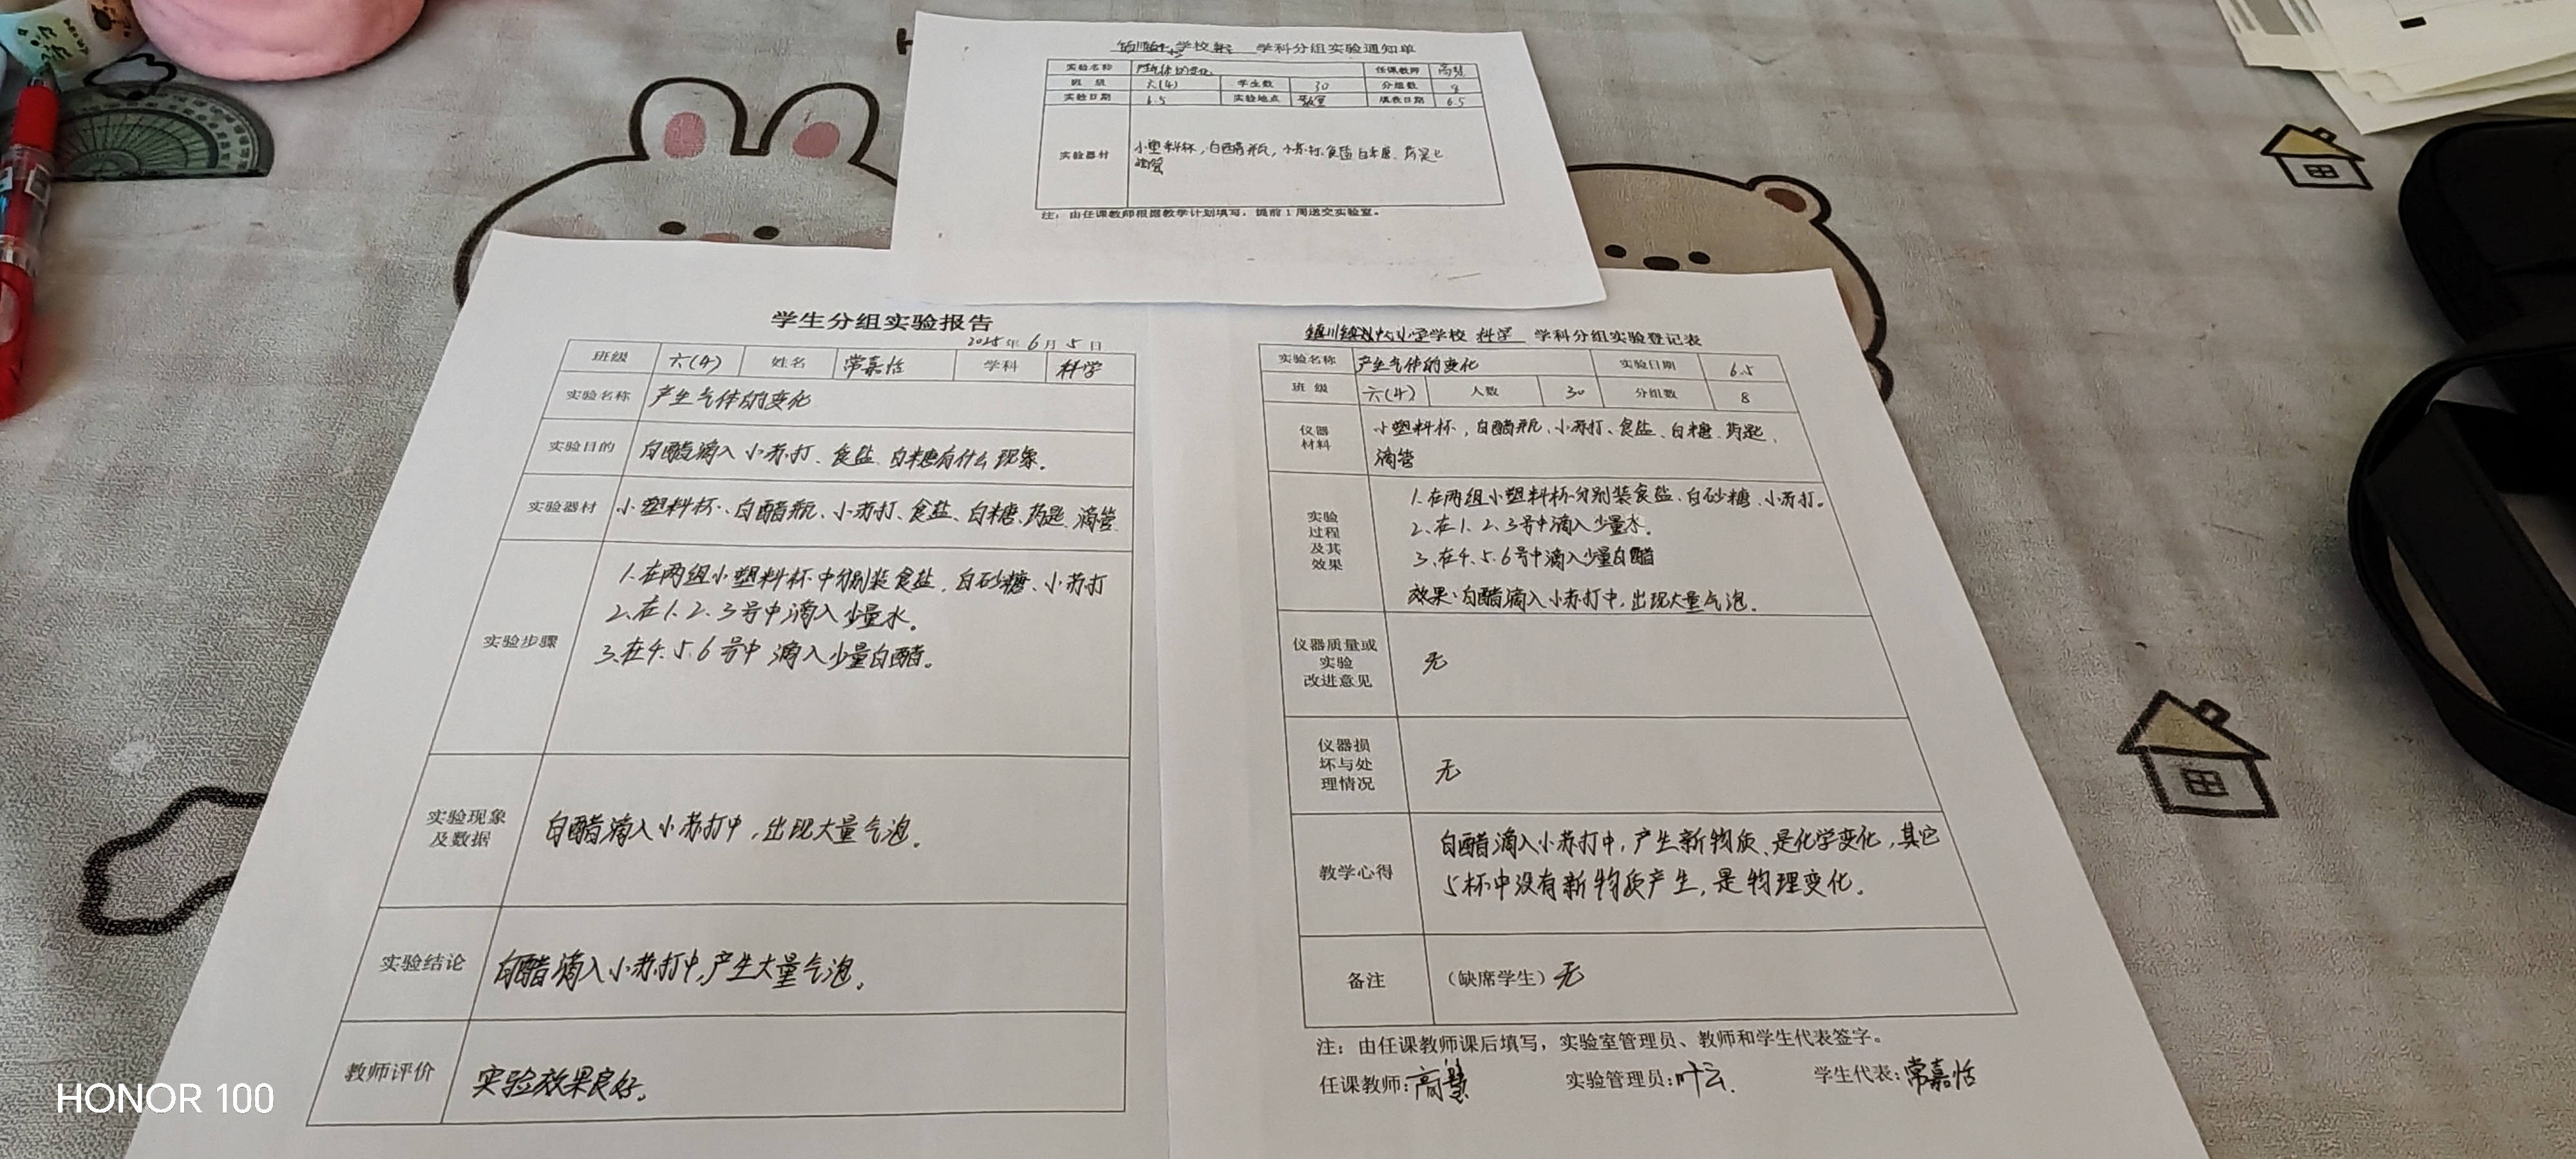 学校 学科分组实验通知单
实验名称 产生气体的变化 任课教师 高慧
班 级 六(4) 学生数 30 分组数 8
实验日期 6.5 实验地点 教室 填表日期 6.5
实验器材 小塑料杯,白醋瓶,小苏打、食盐、白糖、药匙、
滴管
注:由任课教师根据教学计划填写,提前1周送交实验室。
学生分组实验报告
2025年6月5日
班级 六(4) 姓名 常嘉恬 学科 科学
实验名称 产生气体的变化
实验目的 白醋滴入小苏打、食盐、白糖有什么现象。
实验器材 小塑料杯、白醋瓶、小苏打、食盐、白糖、药匙、滴管
实验步骤
1.在两组小塑料杯中分别装食盐,白砂糖、小苏打
2.在1、2、3号中滴入少量水。
3.在4、5、6号中滴入少量白醋。
实验现象
及数据
白醋滴入小苏打中,出现大量气泡。
实验结论 白醋滴入小苏打中,产生大量气泡。
教师评价 实验效果良好。
中心小学学校 科学 学科分组实验登记表
实验名称 产生气体的变化 实验日期 6.5
班 级 六(4) 人数 30 分组数 8
仪器
材料
小塑料杯,白醋瓶、小苏打、食盐、白糖、药匙、
滴管
实验
过程
及其
效果
1.在两组小塑料杯分别装食盐、白砂糖、小苏打。
2.在1、2、3号中滴入少量水。
3.在4、5、6号中滴入少量白醋
效果:白醋滴入小苏打中,出现大量气泡。
仪器质量或
实验
改进意见
无
仪器损
坏与处
理情况
无
教学心得
白醋滴入小苏打中,产生新物质、是化学变化,其它
5杯中没有新物质产生,是物理变化。
备注 (缺席学生)无
注:由任课教师课后填写,实验室管理员、教师和学生代表签字。
任课教师:高慧 实验管理员:叶云. 学生代表:常嘉恬
HONOR 100